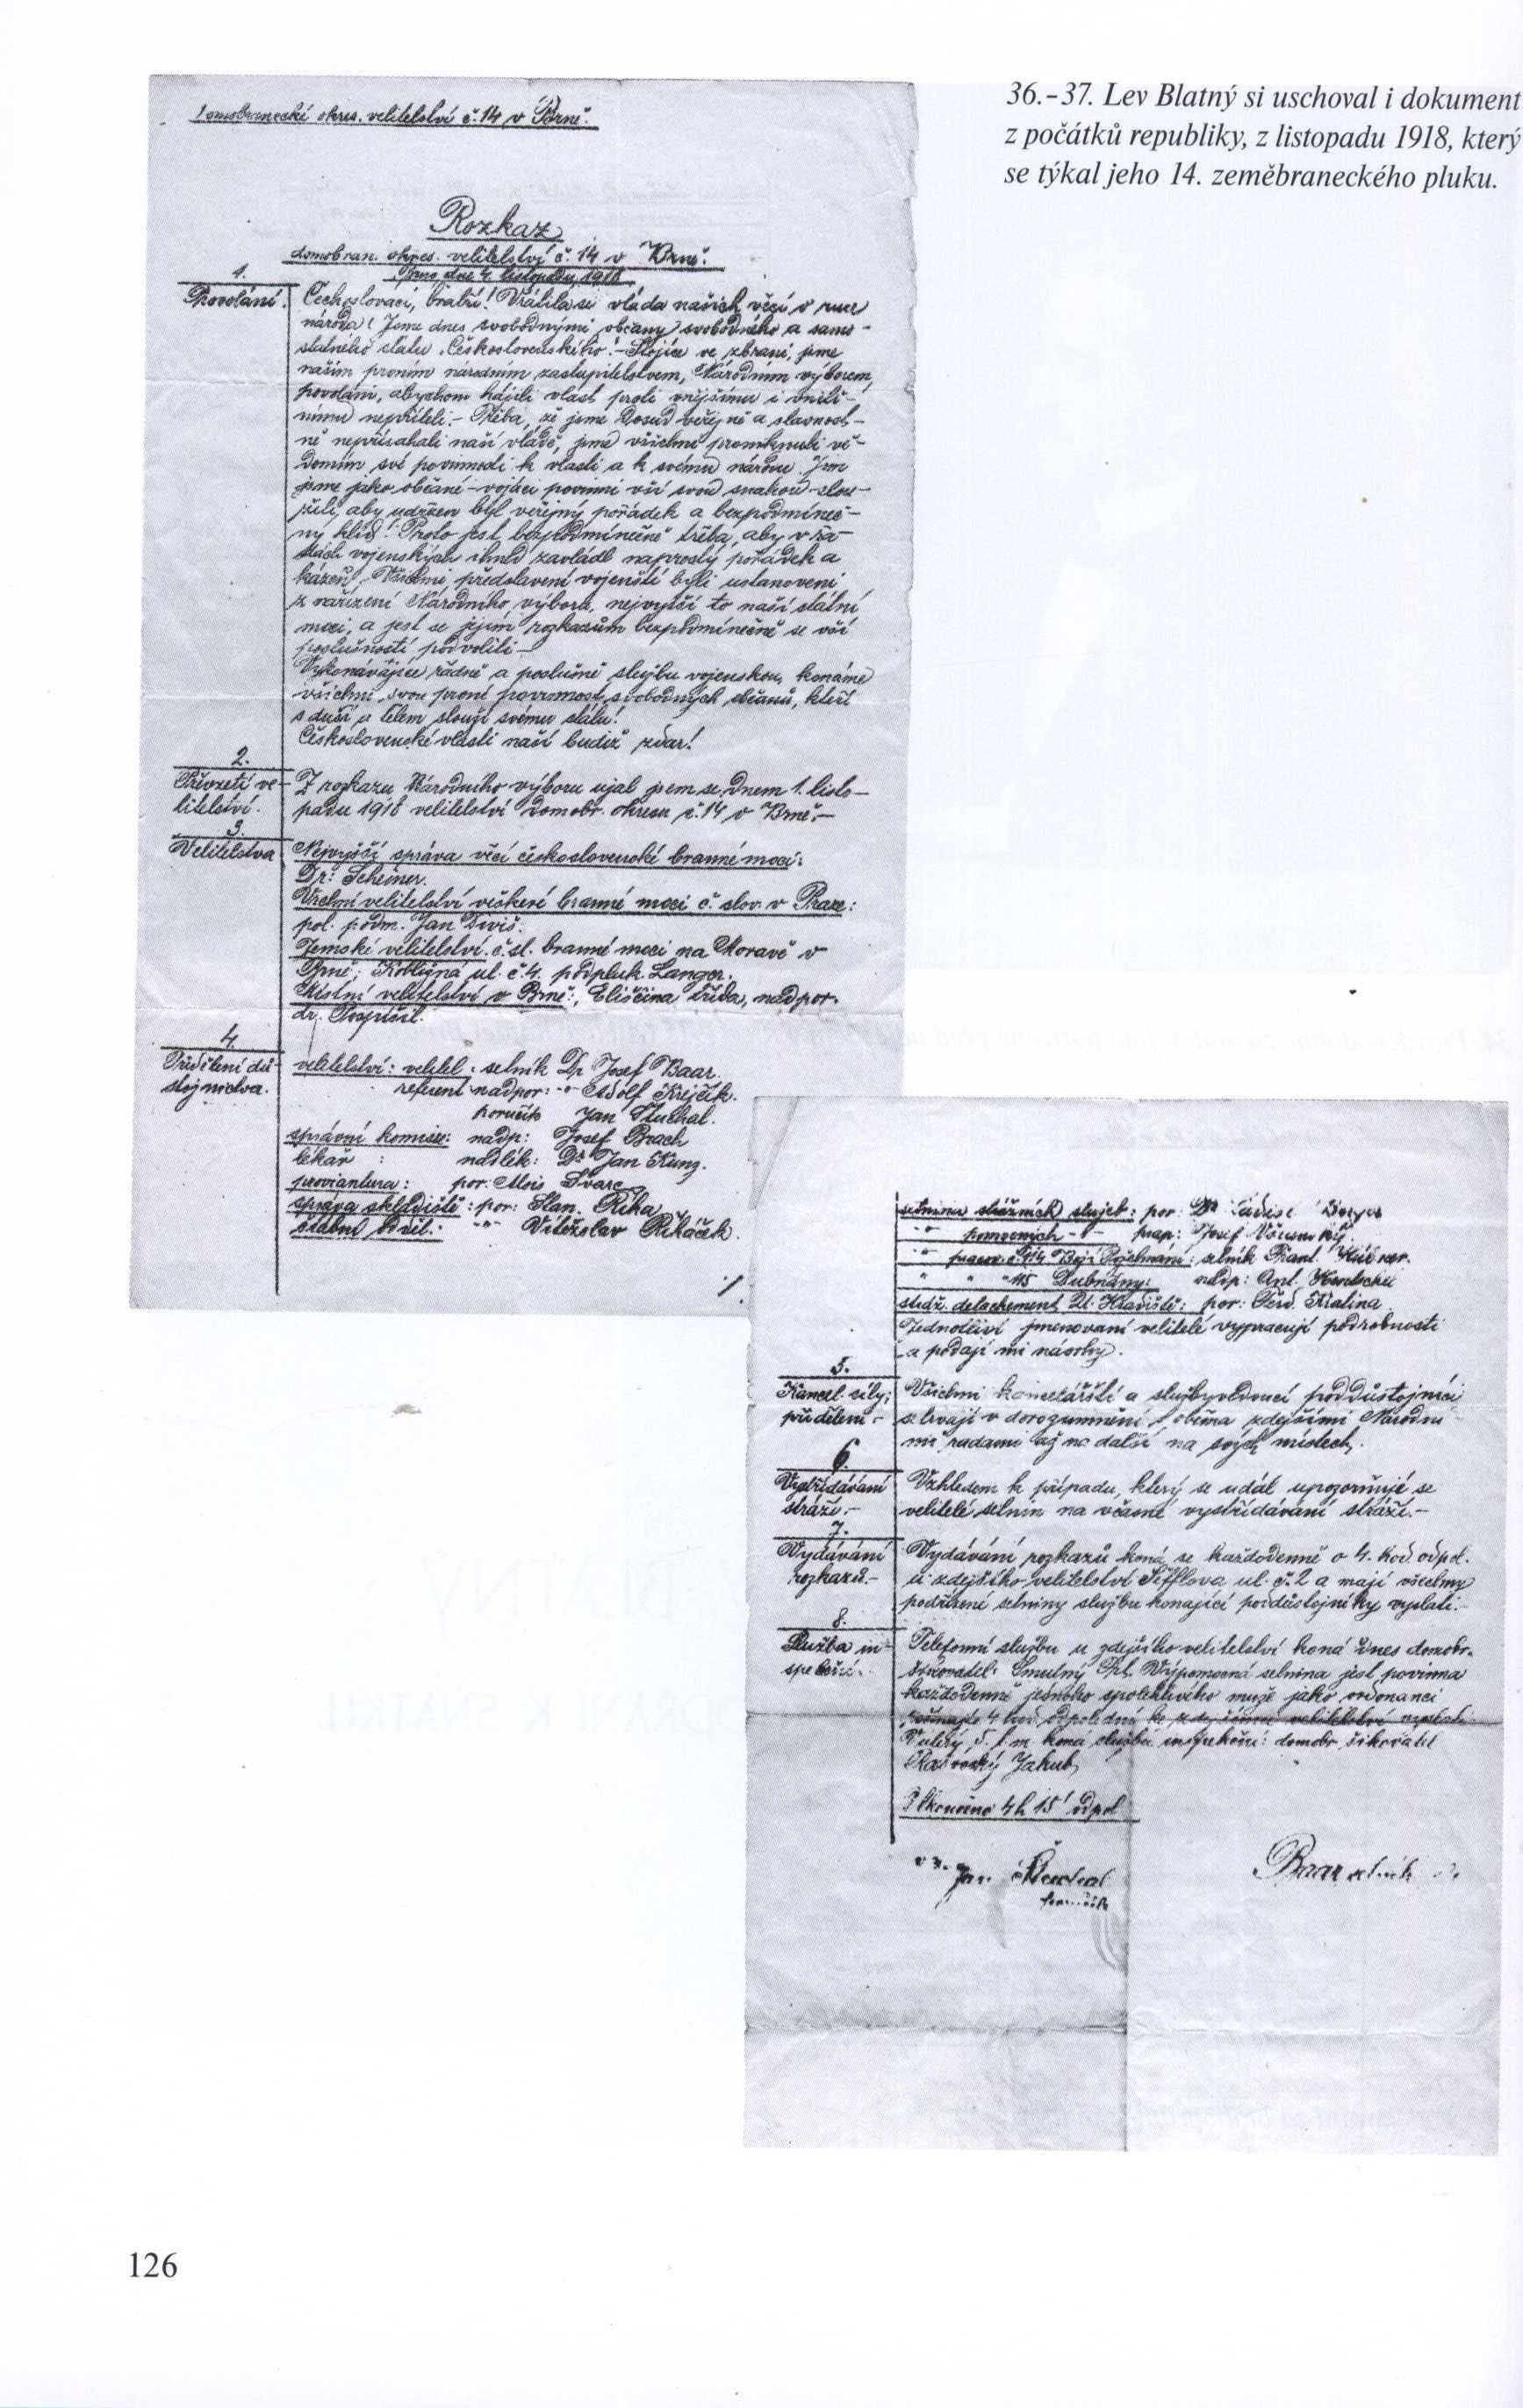 36.–37. Lev Blatný si uschoval i dokument
z počátků republiky, z listopadu 1918, který
se týkal jeho 14. zeměbraneckého pluku.
Domobranecké okres. velitelství č. 14 v Brně.
Rozkaz
domobran. okres. velitelství č. 14 v Brně.
Brno dne 4. listopadu 1918
1.
Provolání.
Čechoslováci, bratří! Vrátila se vláda našich věcí v ruce
národa! Jsme dnes svobodnými občany svobodného a samo-
statného státu Československého! – Stojíce ve zbrani, jsme
naším prvním národním zastupitelstvem, Národním výborem,
povoláni, abychom hájili vlast proti vnějšímu i vnitř-
nímu nepříteli. – Třeba, že jsme dosud veřejně a slavnost-
ně nepřísahali naší vládě, jsme všichni proniknuti vě-
domím své povinnosti k vlasti a k svému národu.
jsme jako občané – vojáci povinni vší svou snahou slou-
žiti, aby udržen byl veřejný pořádek a bezpodmíneč-
ný klid! Proto jest bezpodmínečně třeba, aby v řa-
dách vojenských ihned zavládl naprostý pořádek a
kázeň. Všichni představení vojenští byli ustanoveni
z nařízení Národního výboru, nejvyšší to naší státní
moci, a jest se jejím rozkazům bezpodmínečně se vší
poslušností podvoliti –
Vykonávajíce řádně a poslušně službu vojenskou, konáme
všichni svou první povinnost svobodných občanů, kteří
s duší a tělem slouží svému státu!
Československé vlasti naší budiž zdar!
2.
Převzetí ve-
litelství.
Z rozkazu Národního výboru ujal jsem se dnem 1. listo-
padu 1918 velitelství domobr. okresu č. 14 v Brně. –
3.
Velitelstva
Nejvyšší správa věcí československé branné moci:
Dr. Scheiner.
Vrchní velitelství veškeré branné moci č. slov. v Praze:
pol. podm. Jan Diviš.
Zemské velitelství č. sl. branné moci na Moravě v
Brně, Kobližná ul. č. 4. podpluk. Langer.
Místní velitelství v Brně:, Eliščina třída, nadpor.
dr. Pospíšil.
4.
Přidělení dů-
stojnictva.
velitelství: velitel: setník Dr Josef Baar.
referent nadpor: Adolf Krejčík.
poručík Jan Stuchal.
správní komise: nadp: Josef Brach
lékař : nadlék: Dr Jan Kunz.
proviantura: por: Alois Švarc
správa skladiště: por: Stan. Říha
štábní odděl.: –"– Vítězslav Řiháček.
./.
setnina strážních služeb: por: Dr
–"– pomocných –"– prap: Josef
–"– pracov. č. : setník Frant.
" " " 115 Dubňany: nadp: Ant.
stráž. detachement U. Hradiště: por: Ferd. Kalina
Jednotliví jmenovaní velitelé vypracují podrobnosti
a podají mi návrhy.
5.
Kancel. síly;
přidělení –
Všichni kancelářští a službyvedoucí poddůstojníci
setrvají v dorozumnění s oběma zdejšími Národní
mi radami až na další na svých místech.
6.
Vystřídávání
stráží. –
Vzhledem k případu, který se udál upozorňují se
velitelé setnin na včasné vystřídávání stráží. –
7.
Vydávání
rozkazů. –
Vydávání rozkazů koná se každodenně o 4. hod. odpol.
u zdejšího velitelství ul. č. 2 a mají všechny
podřízené setniny službu konající poddůstojníky vyslati. –
8.
Služba in-
spekční.
Telefonní službu u zdejšího velitelství koná dnes domobr.
šikovatel Smutný Výpomocná setnina jest povinna
každodenně jednoho spolehlivého muže jako ordonanci
4 hod odpoledne ke zdejšímu velitelství vyslati
Úterý 5. t. m. koná službu inspekční: domobr. šikovatel
Jakub
Skončeno 4 h 15' odpol
Jan Stuchal
poručík
Baar setník
126